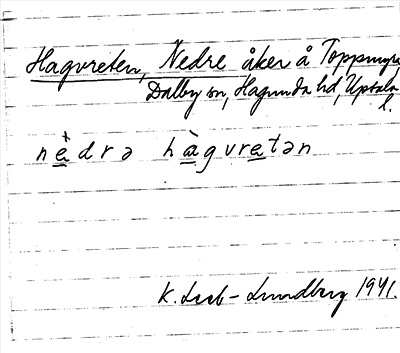 Hagvreten, Nedre åker å Toppmyra
Dalby sn, Hagunda hd, Uppsala
l.
nèdrə hàgvretən
K. Leeb-Lundberg 1941.